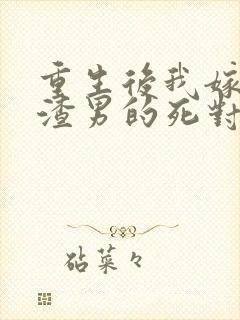 重生後我嫁
渣男的死對
砧菜々